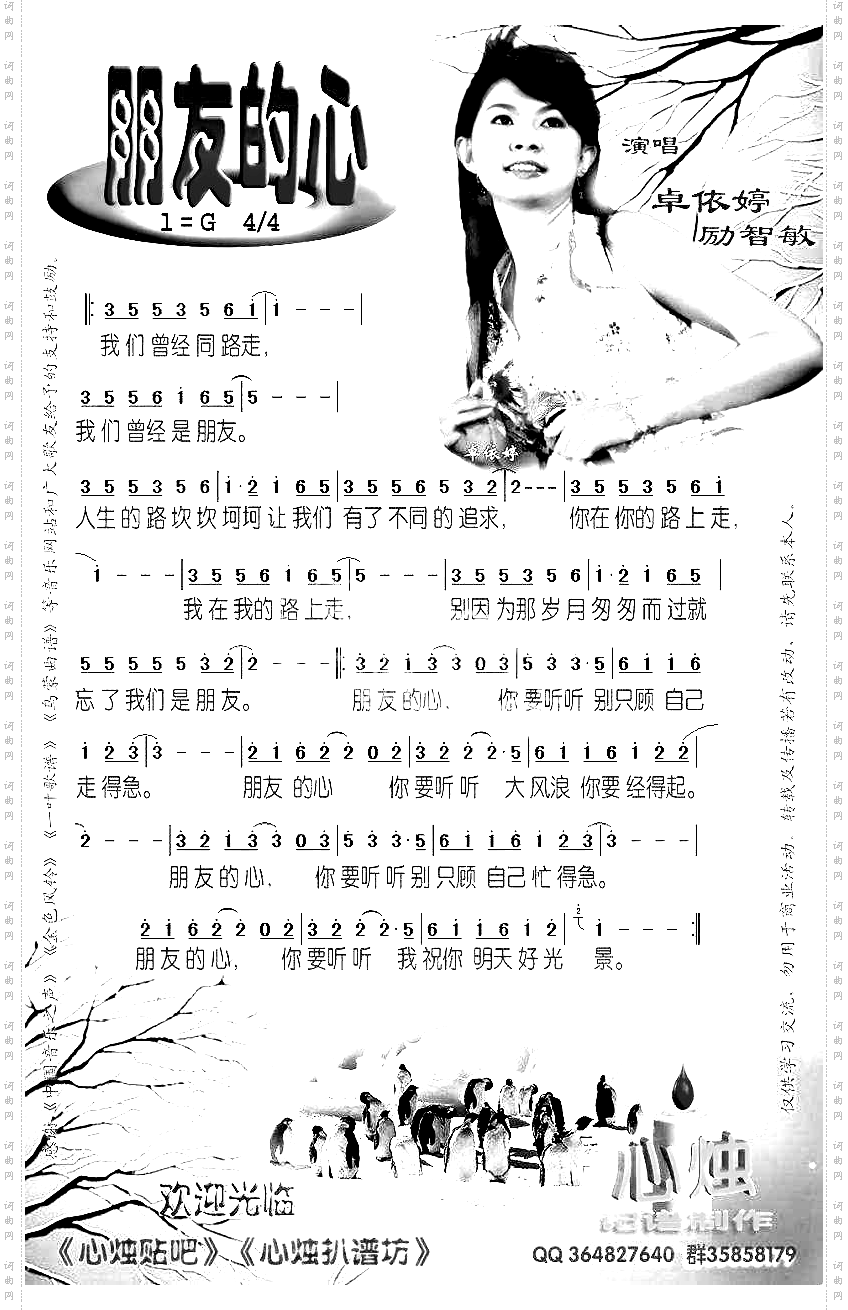 朋友的心
1 = G 4/4
演唱
卓依婷
励智敏
卓依婷
3 5 5 3 5 6 i | i - - - |
我们曾经同路走，
3 5 5 6 i 6 5 | 5 - - - |
我们曾经是朋友。
3 5 5 3 5 6 | i · 2 i 6 5 | 3 5 5 6 5 3 2 | 2 - - - | 3 5 5 3 5 6 i
人生的路坎坎坷坷让我们 有了不同的追求， 你在你的路上走，
i - - - | 3 5 5 6 i 6 5 | 5 - - - | 3 5 5 3 5 6 | i · 2 i 6 5 |
我在我的路上走， 别因为那岁月匆匆而过就
5 5 5 5 5 3 2 | 2 - - - ‖: 3 2 i 3 3 0 3 | 5 3 3 · 5 | 6 i i 6
忘了我们是朋友。 朋友的心， 你要听听 别只顾自己
i 2 3 | 3 - - - | 2 i 6 2 2 0 2 | 3 2 2 2 · 5 | 6 i i 6 i 2 2
走得急。 朋友的心 你要听听 大风浪你要经得起。
2 - - - | 3 2 i 3 3 0 3 | 5 3 3 · 5 | 6 i i 6 i 2 3 | 3 - - - |
朋友的心， 你要听听别只顾自己忙得急。
2 i 6 2 2 0 2 | 3 2 2 2 · 5 | 6 i i 6 i 2 | 2 i - - - :‖
朋友的心， 你要听听 我祝你明天好光 景。
《中国音乐之声》《金色风铃》《一叶歌谱》《乌蒙曲谱》等音乐网站和广大歌友给予的支持和鼓励。
仅供学习交流，勿用于商业活动，转载及传播若有改动，请先联系本人。
心烛
制作
欢迎光临
《心烛贴吧》《心烛扒谱坊》
QQ 364827640 群35858179
词曲网